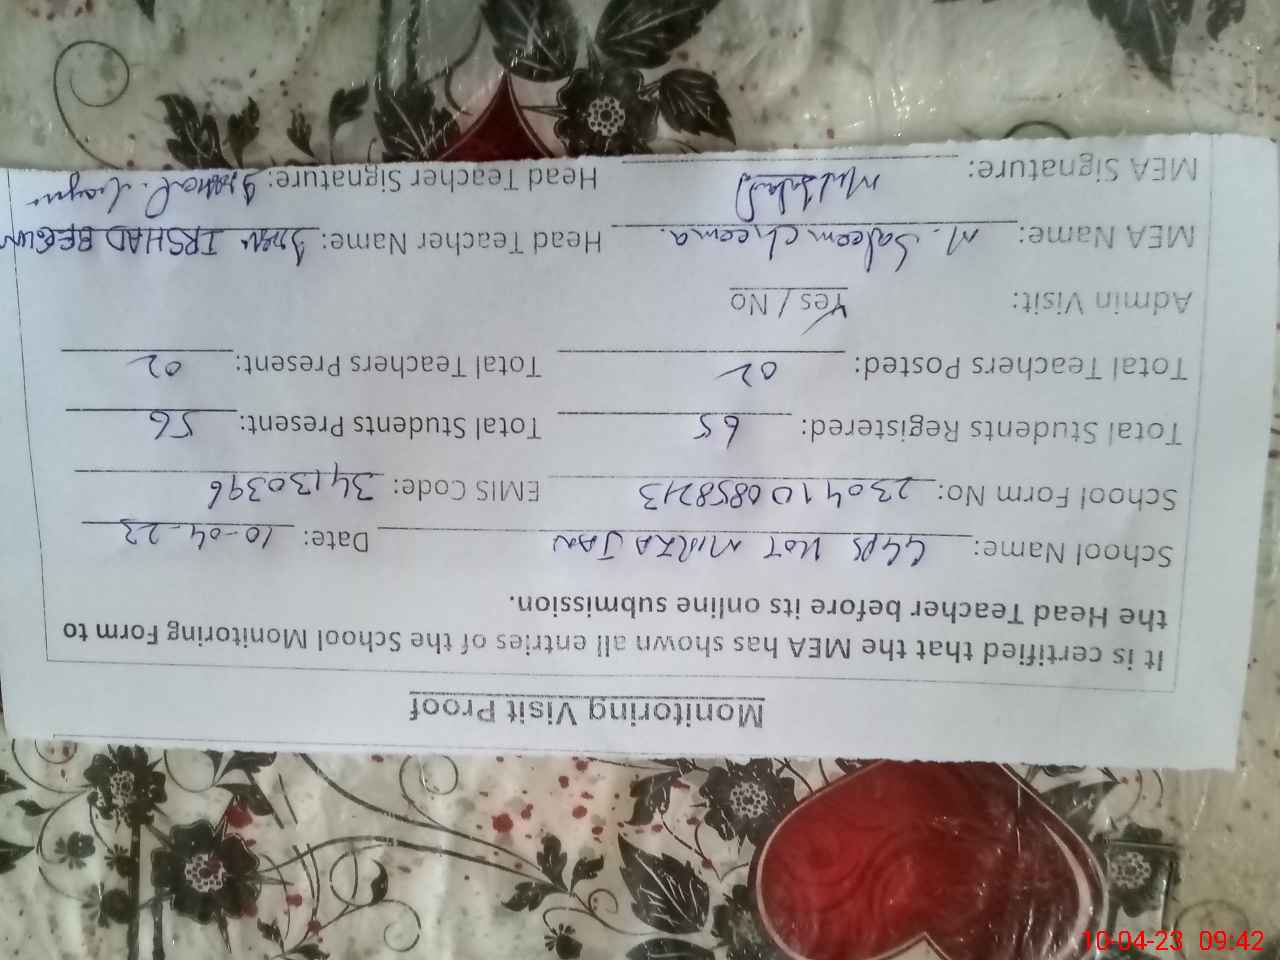 Monitoring Visit Proof
It is certified that the MEA has shown all entries of the School Monitoring Form to
the Head Teacher before its online submission.
School Name: GGPS KOT MIRZA JAN Date: 10-04-23
School Form No: 230410 0858213 EMIS Code: 34130396
Total Students Registered: 65 Total Students Present: 56
Total Teachers Posted: 02 Total Teachers Present: 02
Admin Visit: Yes / No
MEA Name: M. Saleem cheema. Head Teacher Name: IRSHAD BEGUM
MEA Signature: Head Teacher Signature:
10-04-23 09:42